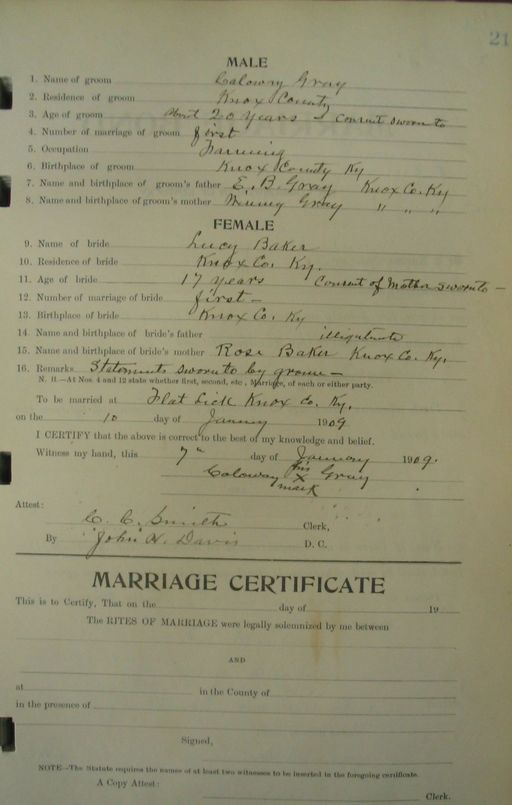 21
MALE
1. Name of groom Calowy Gray
2. Residence of groom Knox County
3. Age of groom about 20 years - consent sworn to
4. Number of marriage of groom first
5. Occupation Farming
6. Birthplace of groom Knox County Ky
7. Name and birthplace of groom's father E. B. Gray Knox Co. Ky
8. Name and birthplace of groom's mother Minny Gray " " "
FEMALE
9. Name of bride Lucy Baker
10. Residence of bride Knox Co. Ky.
11. Age of bride 17 years Consent of Mother sworn to -
12. Number of marriage of bride first -
13. Birthplace of bride Knox Co. Ky
14. Name and birthplace of bride's father illigitimate
15. Name and birthplace of bride's mother Rose Baker Knox Co. Ky.
16. Remarks Statements sworn to by groom -
N. B.—At Nos. 4 and 12 state whether first, second, etc., Marriage, of each or either party.
To be married at Flat Lick Knox Co. Ky.
on the 10 day of January 1909
I CERTIFY that the above is correct to the best of my knowledge and belief.
Witness my hand, this 7" day of January 1909.
Caloway his X mark Gray
Attest:
C. C. Smith Clerk,
By John H. Davis D. C.
MARRIAGE CERTIFICATE
This is to Certify, That on the day of 19
The RITES OF MARRIAGE were legally solemnized by me between
AND
at in the County of
in the presence of
Signed,
NOTE—The Statute requires the names of at least two witnesses to be inserted in the foregoing certificate.
A Copy Attest:
Clerk.